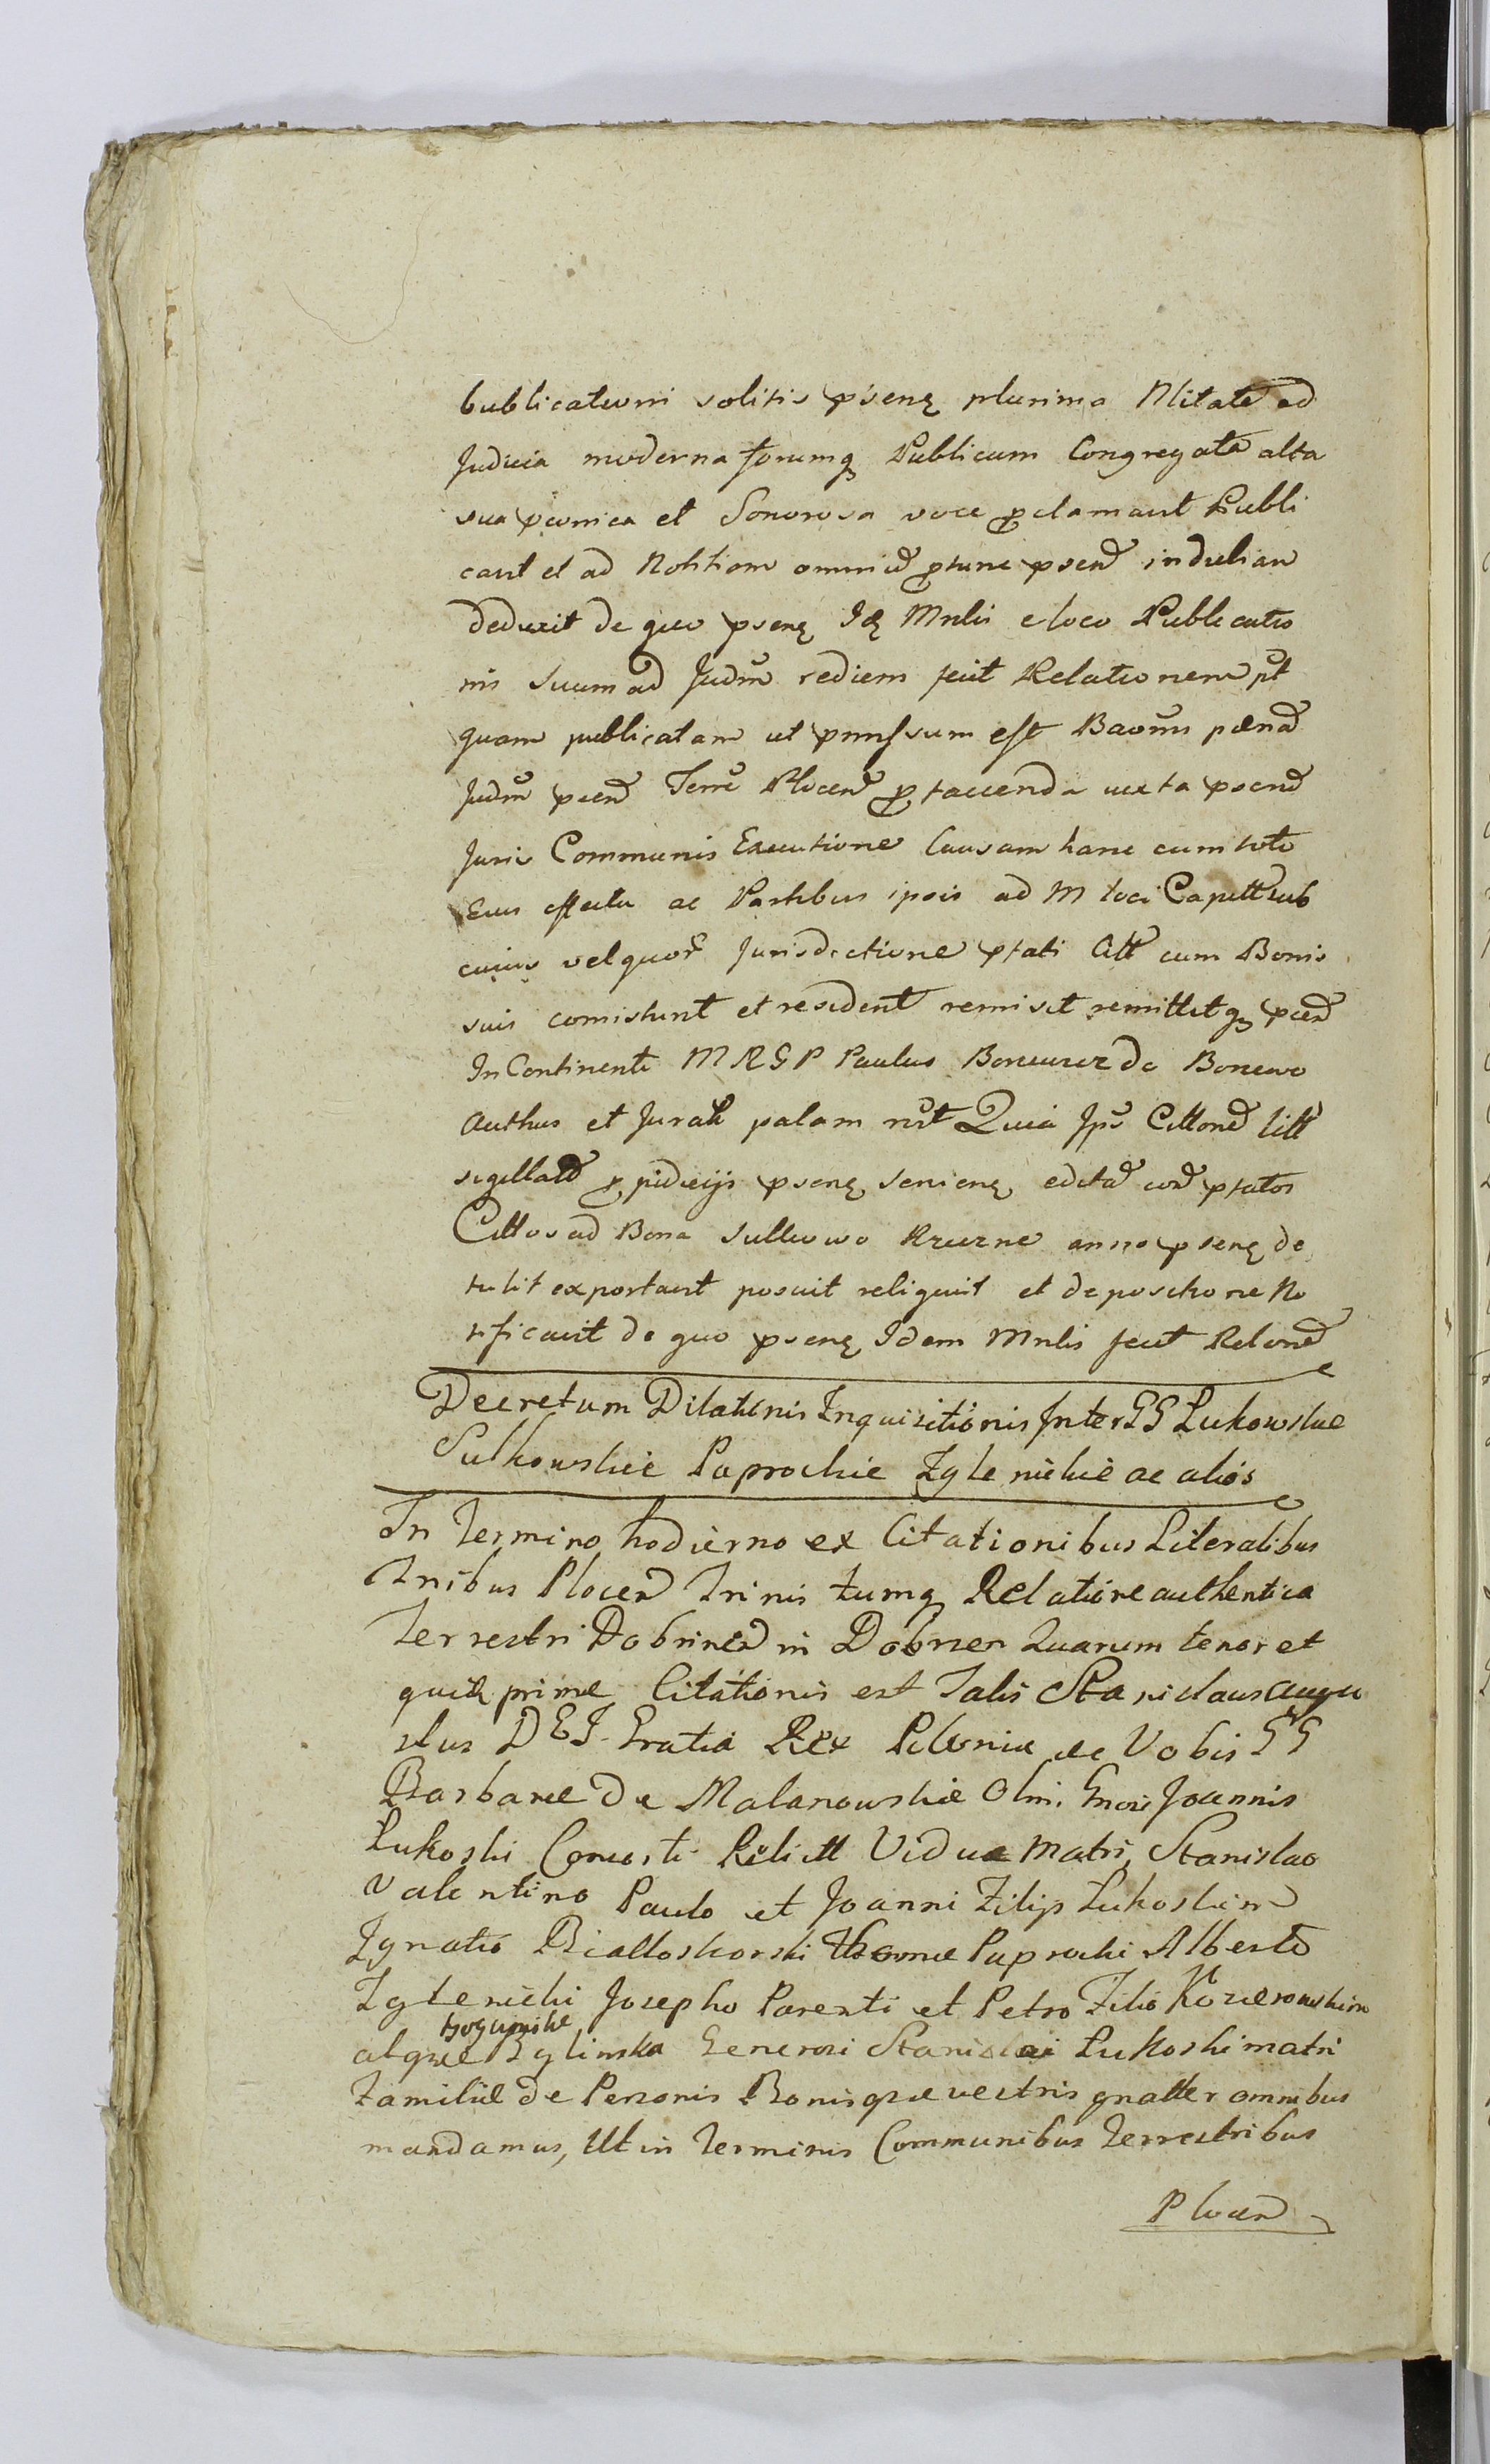 bublicationi solitis pśenę plurima Nlitate ad
Judicia moderna forumq Publicum Congregata alta
sua et Sonorosa voce proclamavit Publi
cavit et ad Notitiam omniu ptunc psen indubiam
deduxit de quo psenę Idę Mnlis e loco Publicatio
nis suum ad Judm rediens fecit Relationem pt
quam publicatam ut pmissum est
Judm Terre Plocen p facienda iuxta psen
Juris Communis Executione Causam hanc cum toto
Eius effectu ac Partibus ipsis ad M loci Capitt sub
cuius vel quor Jurisdictione ptati Citt cum Bonis
suis consistunt et resident remisit remittitq
In Continenti M R G P Paulus de Bonewo
Authus et Jurat palam rect Quia Jps Cittone litt
sigillate p judicijs psenę edita ptatos
Cittos ad Bona Sulkowo Rzeczne anno psenę de
tulit exportavit posuit reliquit et depositione No
tificavit de quo psenę Idem Mnlis fecit Relone
Decretum Dilationis Inquisitionis Inter GG Lukowskie
Sulkowskie Paprockie Zglenickie ac alios
In Termino hodierno ex Citationibus Literalibus
Tnibus Plocen Trinis tumq Relatione authentica
Terrestri Dobrinen in Dobrzen Quarum tenor et
quidę prime Citationis est Talis Stanislaus Augu
stus DEI Gratia Rex Polonie ac Vobis GG
Barbare De Malanowskie Olim Gnosi Joannis
Lukoski Consorti Relictt Vidue Matri, Stanislao
Valentino Paulo et Joanni Filijs Lukoskim
Ignatio Bialloskorski Thome Paprocki Alberto
Zglenicki Josepho Parenti et Petro Filio Kozierowskim
atque Zglinska Generosi Stanislai Lukoski matri
Familie de Personis Bonisque vestris gnatter omnibus
mandamus, Ut in Terminis Communibus Terrestribus
Plocen